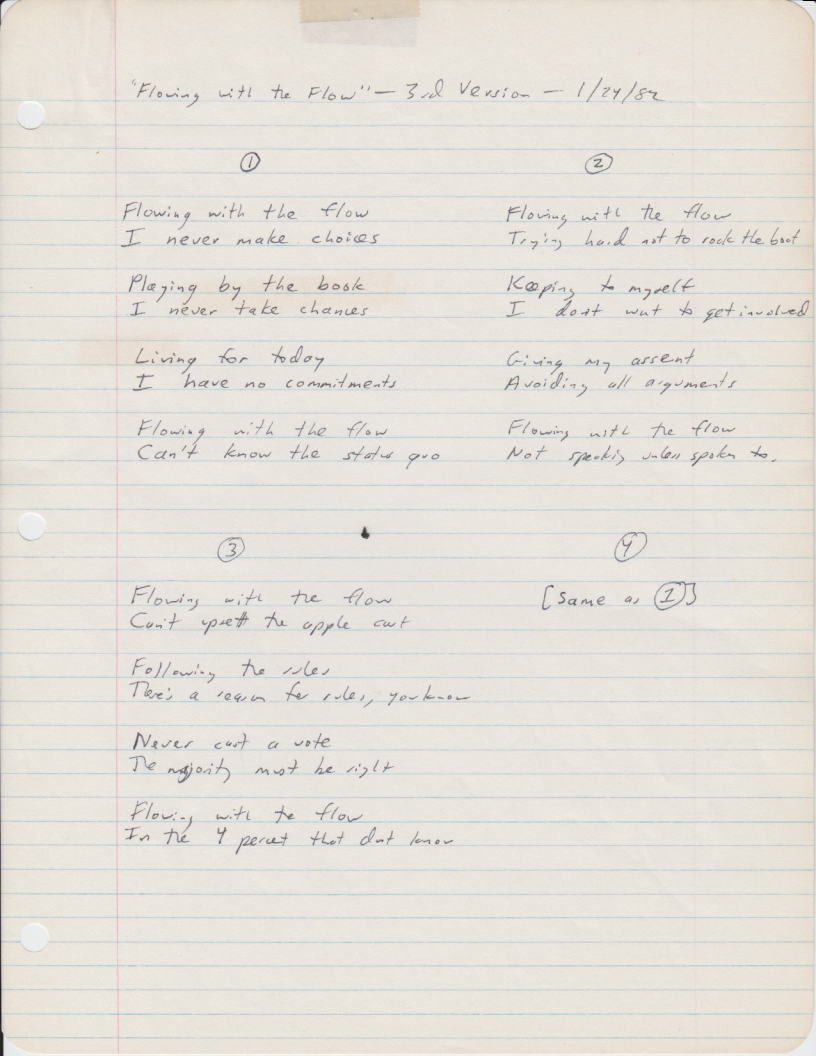 "Flowing with the Flow" — 3rd Version — 1/24/82
①
Flowing with the flow
I never make choices
Playing by the book
I never take chances
Living for today
I have no commitments
Flowing with the flow
Can't know the status quo
②
Flowing with the flow
Trying hard not to rock the boat
Keeping to myself
I don't want to get involved
Giving my assent
Avoiding all arguments
Flowing with the flow
Not speaking unless spoken to.
③
Flowing with the flow
Can't upset the apple cart
Following the rules
There's a reason for rules, you know
Never cast a vote
The majority must be right
Flowing with the flow
In the 4 percent that don't know
④
[Same as ①]